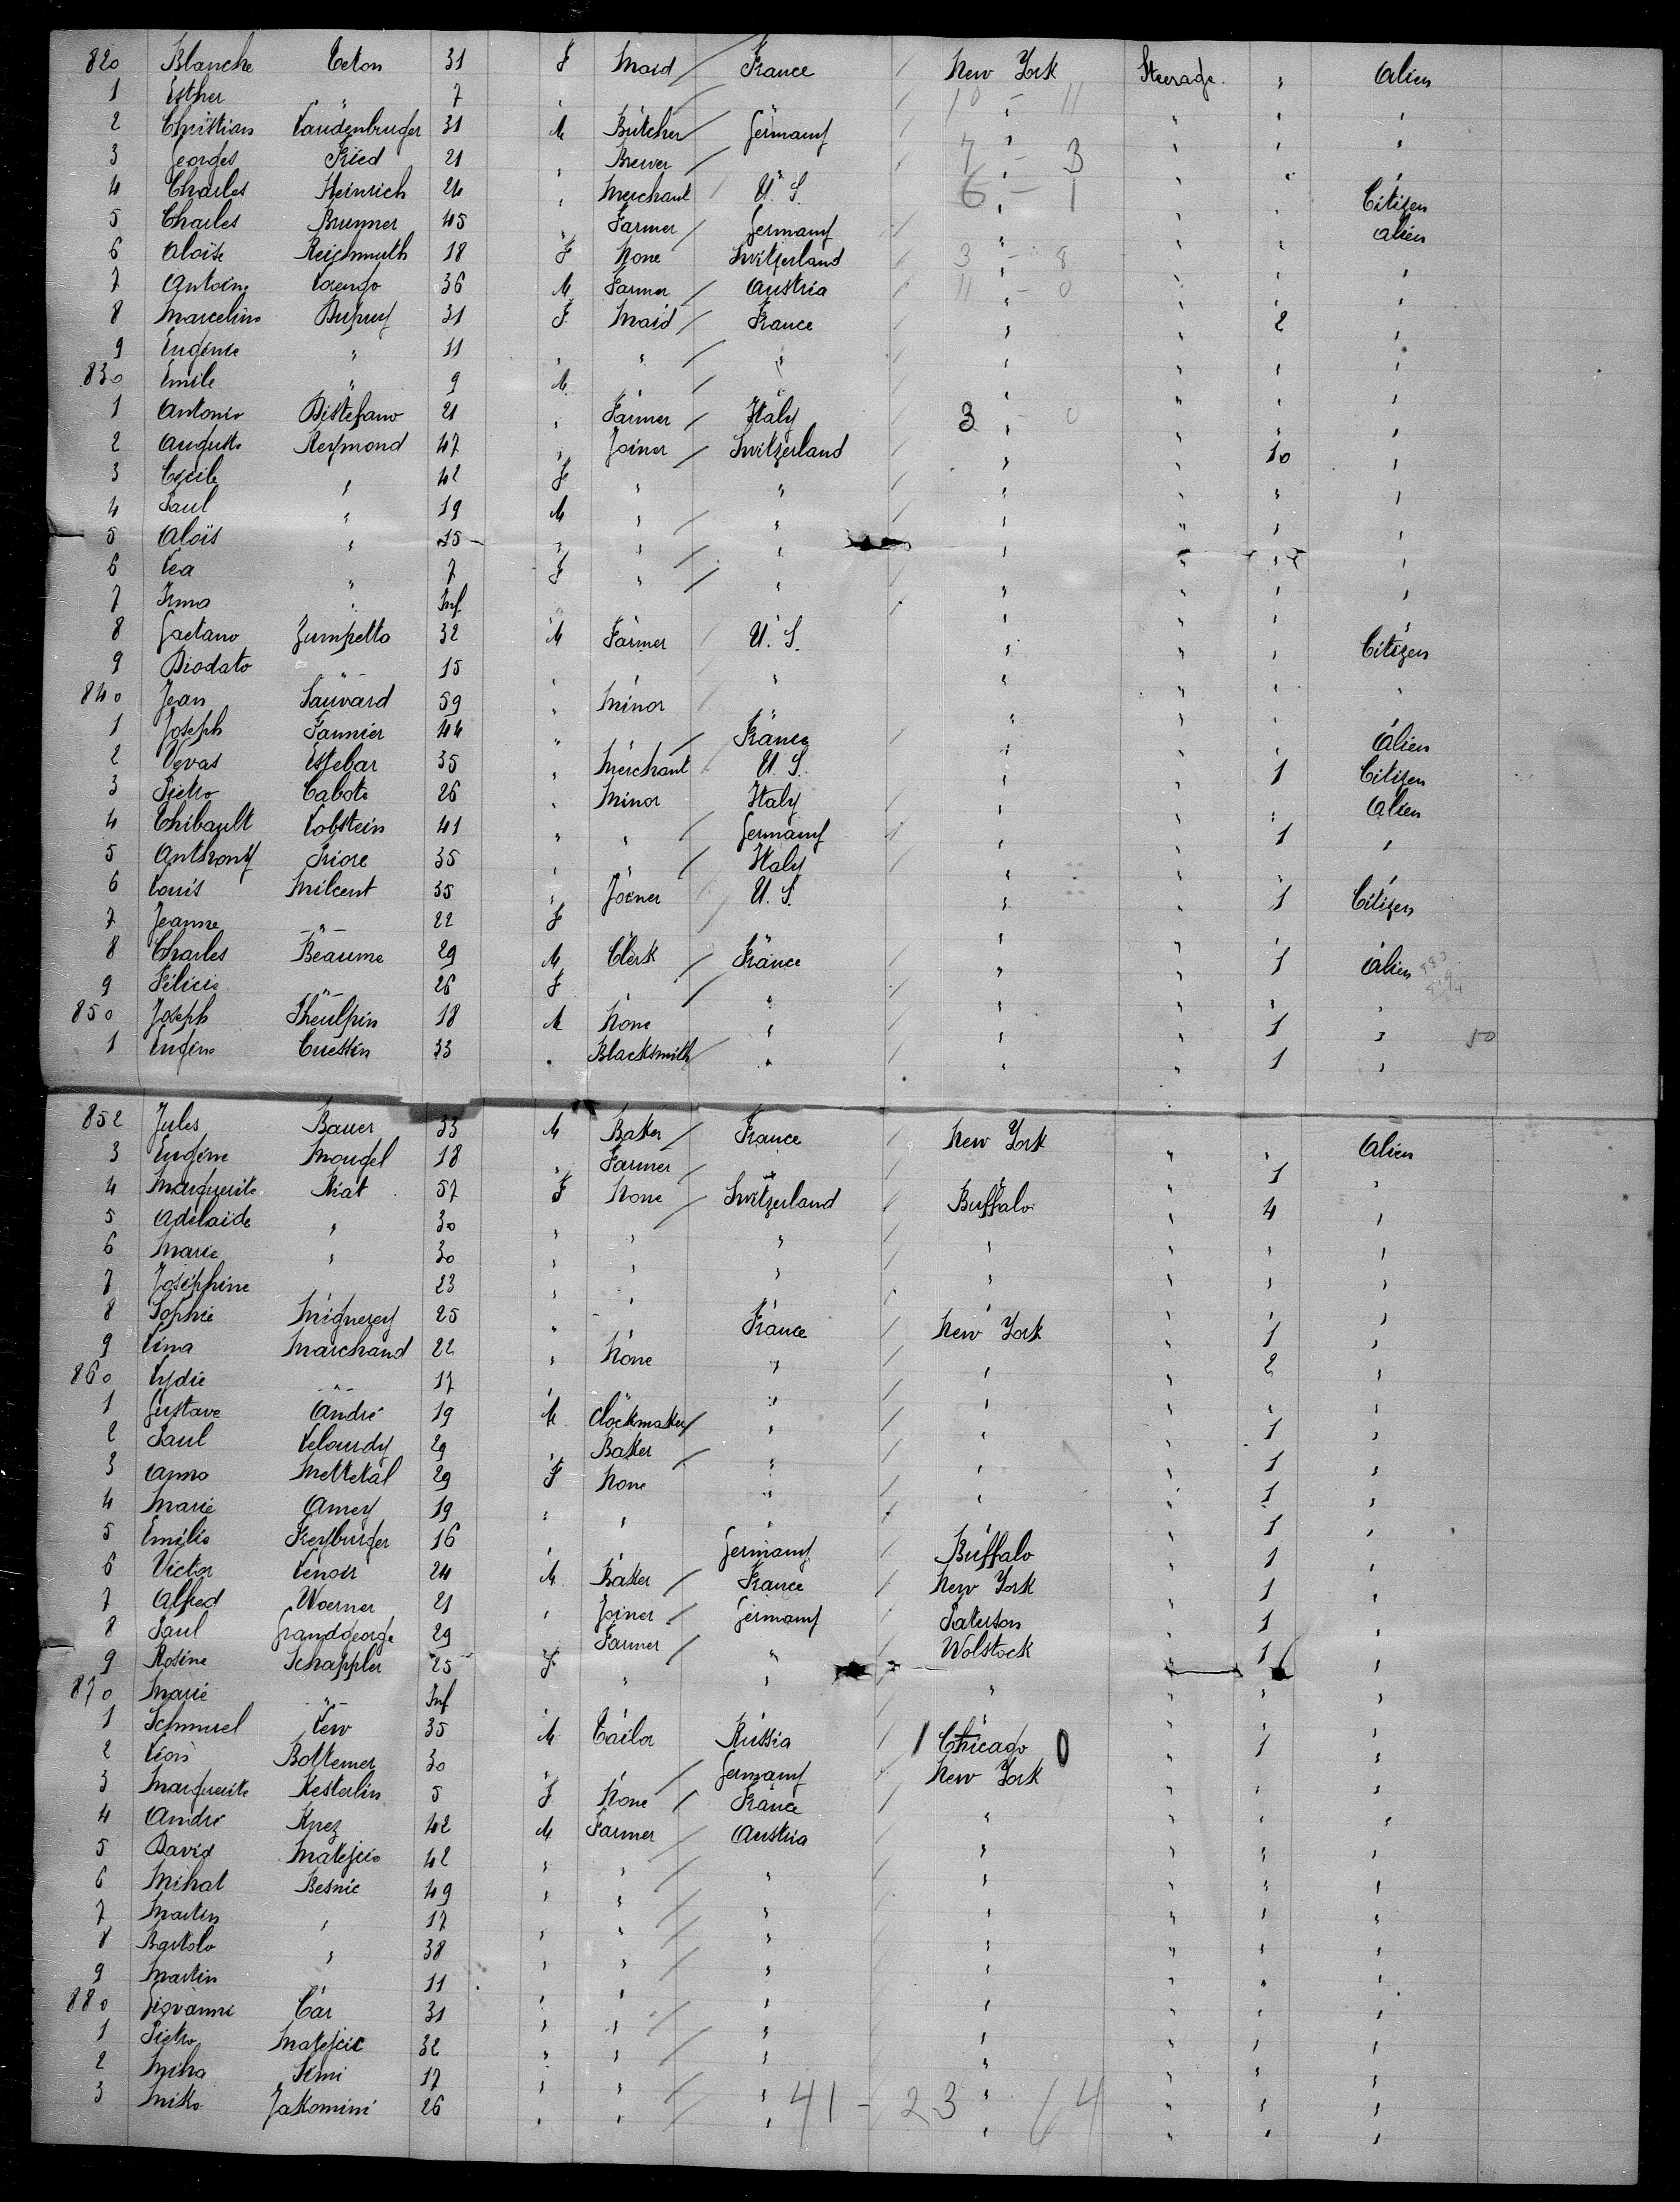 820 Blanche Leton 31 F Maid / France / New York Steerage " Alien
1 Esther " 7 " / " / 10 - 11 " " "
2 Christian Laudenbruger 31 M Butcher / Germany / " " " "
3 Georges Fried 21 " Brewer / " / 7 " - 3 " " "
4 Charles Heinrich 24 " Merchant / U. S. 6 " - 1 " " Citizen
5 Charles Brunner 45 " Farmer / Germany / " " " Alien
6 Aloïse Reichmuth 18 F None Switzerland / 3 " - 8 " " "
7 Antoine Lorenzo 36 M Farmer / Austria / 11 " - 0 " " "
8 Marceline Dupuy 31 F Maid / France / " " 2 "
9 Eugénie " 11 " " / " / " " " "
830 Emile " 9 M " / " / " " " "
1 Antonio Distefano 21 " Farmer / Italy / 3 " - 0 " " "
2 Auguste Reymond 47 " Joiner / Switzerland / " " 10 "
3 Cécile " 42 F " " / " " " "
4 Paul " 19 M " / " / " " " "
5 Aloïs " 15 " " / " / " " " "
6 Lea " 7 F " / " / " " " "
7 Irma " Inf. " " " / " " " "
8 Gaetano Zumpetto 32 M Farmer / U. S. " " " Citizen
9 Diodato " 15 " " " " " " "
840 Jean Sauvard 59 " Minor / " " " " "
1 Joseph Fannier 44 " " / France / " " " Alien
2 Vevas Estebar 35 " Merchant / U. S. " " 1 Citizen
3 Pietro Cabote 26 " Minor Italy " " " Alien
4 Thibault Lobstein 41 " " / Germany / " " 1 "
5 Anthony Fiore 35 " " / Italy / " " " "
6 Louis Milcent 35 " Joiner / U. S. " " 1 Citizen
7 Jeanne " 22 F " / " " " " "
8 Charles Beaume 29 M Clerk / France / " " 1 Alien
9 Félicie " 26 F " / " / " " " "
850 Joseph Theulpin 18 M None " / " " 1 " 50
1 Eugène Cuessin 33 " Blacksmith / " / " " 1 "
852 Jules Bauer 33 M Baker / France / New York " " Alien
3 Eugène Mougel 18 " Farmer / " / " " 1 "
4 Marguerite Riat 57 F None / Switzerland / Buffalo " 4 "
5 Adélaide " 30 " " " " " " "
6 Marie " 30 " " " " " " "
7 Joséphine 23 " " " " " " "
8 Sophie Mignerey 25 " " France / New York " 1 "
9 Lina Marchand 22 " None " / " " 2 "
860 Lydie " 17 " " " / " " " "
1 Gustave André 19 M Clockmaker / " / " " 1 "
2 Paul Velourdy 29 " Baker / " / " " 1 "
3 Anna Mettetal 29 F None " / " " 1 "
4 Marie Amey 19 " " " / " " 1 "
5 Emilie Freyburger 16 " " Germany / Buffalo " 1 "
6 Victor Lenoir 24 M Baker / France / New York " 1 "
7 Alfred Woerner 21 " Joiner / Germany / Paterson " 1 "
8 Paul Grandgeorge 29 " Farmer / " / Wolstock " 1 "
9 Rosine Schappler 25 F " " " " " "
870 Marie " Inf " " " " " " "
1 Schmuel Lew 35 M Tailor Russia / 1 Chicago 0 " 1 "
2 Léon Bottemer 30 " " / Germany / New York " " "
3 Marguerite Kesterlin 5 F None / France / " " " "
4 André Knez 42 M Farmer / Austria / " " " "
5 David Matejcic 42 " " / " / " " " "
6 Mihal Besnic 49 " " / " / " " " "
7 Martin " 17 " " / " / " " " "
8 Bartolo " 38 " " / " / " " " "
9 Martin " 11 " " / " / " " " "
880 Giovanni Car 31 " " / " / " " " "
1 Pietro Matejcic 32 " " / " / " " " "
2 Miha Simi 17 " " / " / " " " "
3 Miko Jakomini 26 " " / " 41 - 23 " 64 " " "